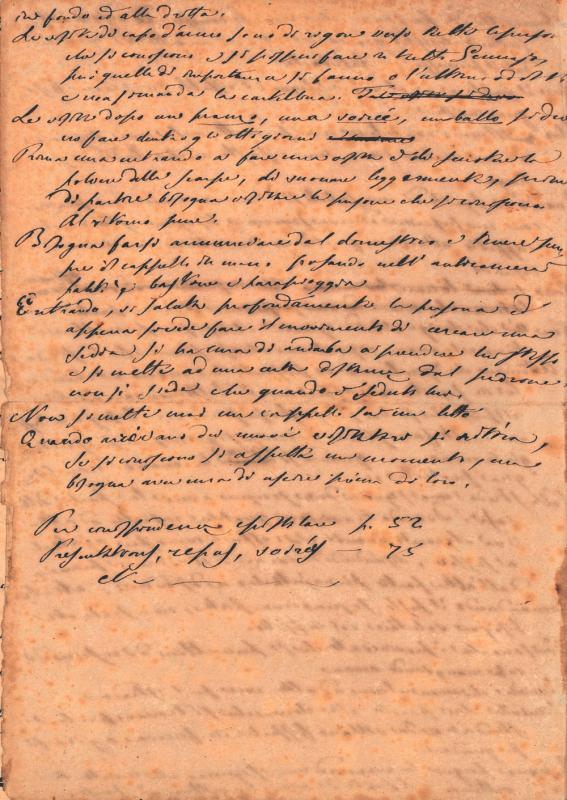 in fondo ed alla dritta.
Le visite di capo d'anno sono di rigore verso tutte le persone
che si conoscono e si possono fare in tutto Gennajo,
più quelle di importanza si fanno o l'ultimo
e non si manda la cartellina.
Le visite dopo un pranzo, una soirée, un ballo si devo
no fare dentro gli otto giorni
Prima cura entrando a fare una visita è di scuotere la
polvere dalle scarpe, di suonare leggermente, prima
di partire bisogna visitare le persone che si conoscono
Al ritorno pure.
Bisogna farsi annunciare dal domestico e tenere sem
pre il cappello in mano posando nell' anticamera
bastone e parapioggia
Entrando, si saluta profondamente la persona e
appena si vede fare il movimento di cercare una
sedia si ha cura di andarla a prendere lui stesso
e si mette ad una certa distanza dal padrone
non si siede che quando è seduto lui.
Non si mette mai un cappello su un letto
Quando arrivano dei nuovi visitatori si ritira,
se si conoscono si aspetta un momento, ma
bisogna aver cura di uscire prima di loro.
Per corrispondenza epistolare p. 52
Presentations, repas, soirées — 75